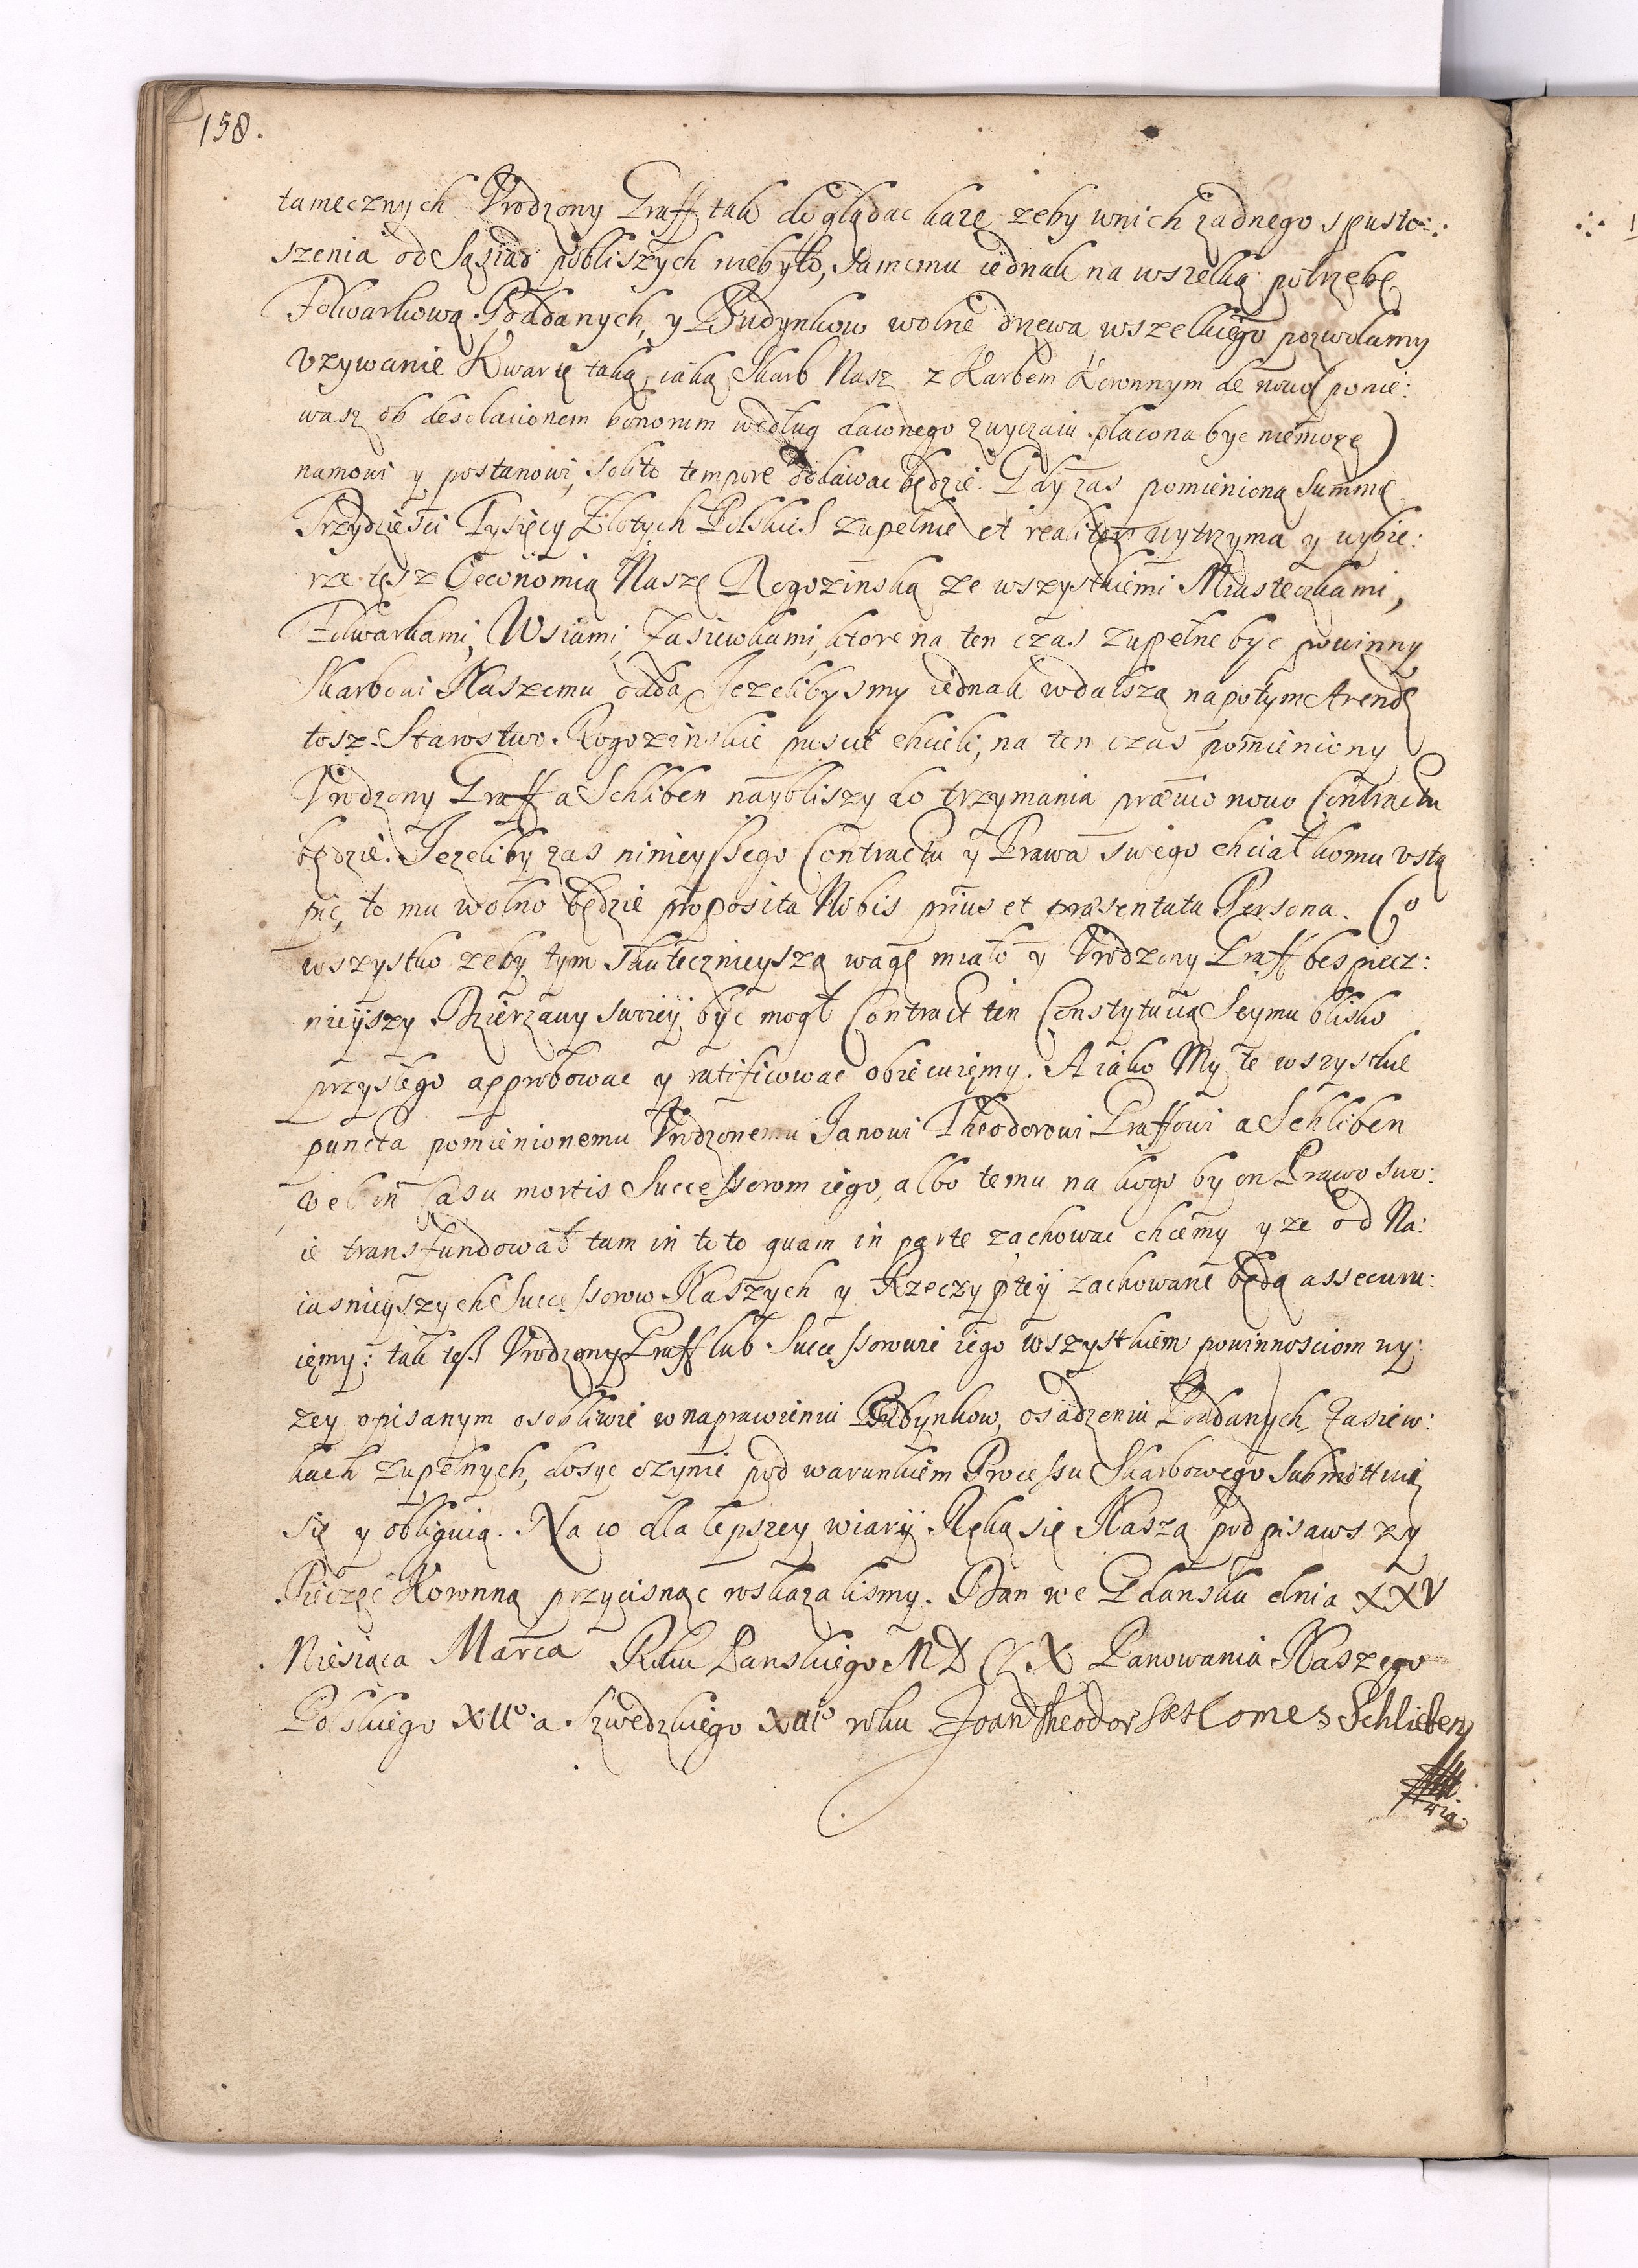 158.
tamecznych Vrodzony Graff tak doglądac każe zeby wnich zadnego spusto:
szenia od Sąsiad pobliszych niebyło, Samemu iednak na wszelką potrzebę
Folwarkową Poddanych, y Budynkow wolne drzewa wszelkiego pozwalamy
Vzywanie Kwartę taką, iaką Skarb Nasz z Karbem Koronnym de novo (ponie:
wasz ob desolationem bonorum według dawnego zwyczaiu płacona byc niemoze)
namowi y postanowi, solito tempore oddawac będzie. Gdy zas pomienioną Summę
Trzydzieści Tysięcy Złotych Polskich zupełnie et realiter wytrzyma y wybie:
rze tesz Oeconomią Naszę Rogozinską ze wszystkiemi Miasteczkami,
Folwarkami, Wsiami, Zasiewkami, ktore na ten czas zupełne byc powinny
Skarbowi Naszemu odda, Jezelibysmy iednak wdalszą napotym Arendę
tosz Starostwo Rogozinskie puscic chcieli, na ten czas pomieniony
Vrodzony Graff a Schliben naybliszy do trzymania prævio novo Contractu
będzie. Jezeliby zas ninieyszego Contractu y Prawa swego chciał komu vstą
pic, to mu wolno będzie proposita Nobis prius et præsentata Persona. Co
wszystko zeby tym skutecznieyszą wagę miało y Vrodzony Graff bespiecz:
nieyszy Dzierzawy swoiey być mogł Contract ten Constytucią Seymu blisko
przyszłego approbowac y ratificowac obiecuięmy. A iako My te wszystkie
puncta pomienionemu Vrodzonemu Janowi Theodorowi Graffowi a Schliben
vel in Casu mortis Successorom iego, albo temu na kogo by on Prawo swo:
ie transfundował tam in toto quam in parte zachowac chcemy y ze od Na:
iasnieyszych Successorow Naszych y Rzeczyptey zachowane będą assecuru:
ięmy: tak tesz Vrodzony Graff lub Successorowie iego wszystkiem powinnosciom wy:
zey opisanym osobliwie wnaprawieniu Budynkow, osadzeniu Poddanych, Zasiew:
kach zupełnych, dosyc czynic pod warunkiem Processu Skarbowego submittuią
się y obliguią. Na co dla lepszey wiary Ręką się Naszą podpisawszy
Pieczęć Koronną przycisnąc roskazalismy. Dan we Gdansku dnia XXV
Miesiąca Marca Roku Panskiego MDCLX Panowania Naszego
Polskiego XIIo a Szwedzkiego XIIIo roku Joan Theodor Comes Schlieben